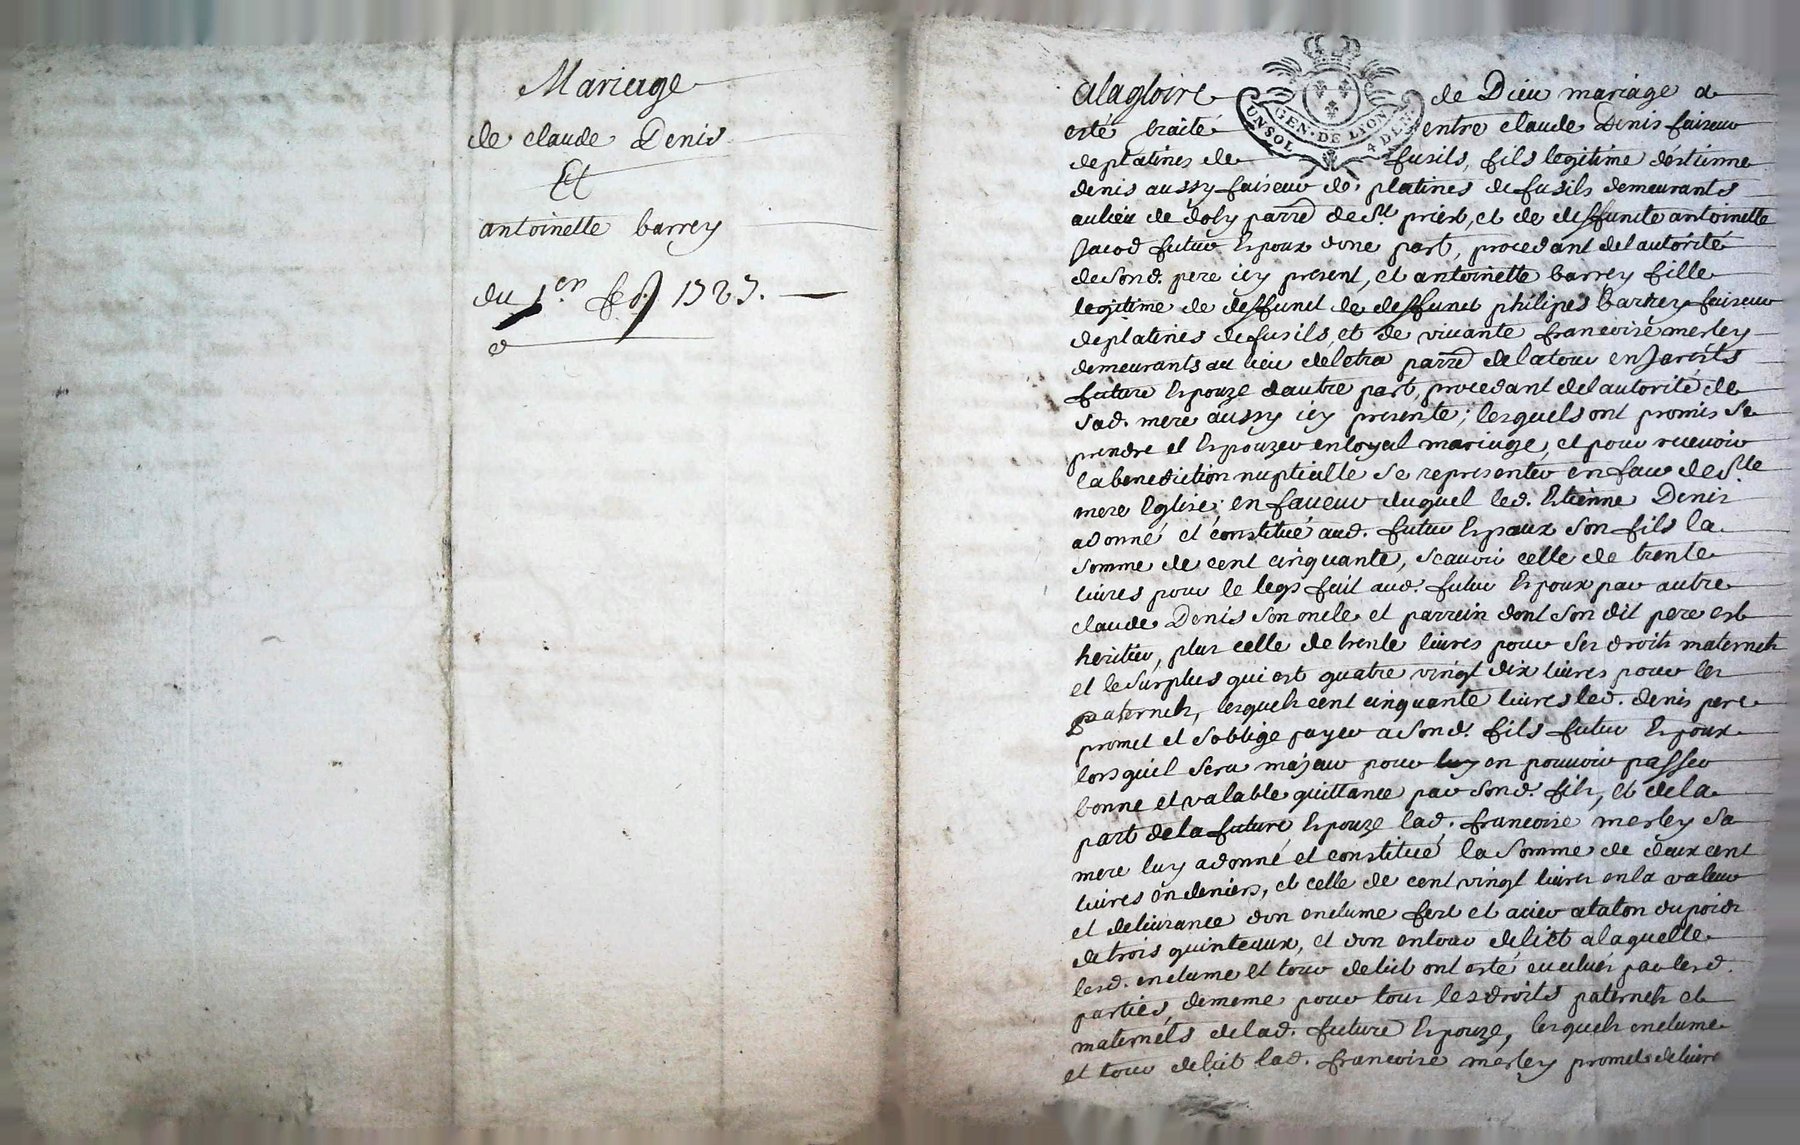 Mariage
de claude Denis
Et
antoinette barrey
du 1er
alagloire de Dieu mariage a
esté traité entre claude Denis faiseur
GEN. DE LYON
UN SOL 4 DEN
deplatines de fusils, fils legitime déstienne
denis aussy faiseur de platines defusils demeurants
aulieu de doly parre de St priest, et de deffuncte antoinette
Jacod futur Espoux dune part, procedant delautorité
deSond. pere icy present, et antoinette barrey fille
legitime de deffunct de deffunct philipes barrey faiseur
deplatines defusils, et de viuante francoise merley
demeurants au lieu deletra parre delatour enJarests
future Espouze dautre part, procedant delautorité de
Sad. mere aussy icy presente; lesquels ont promis Se
prendre et Espouzer enloyal mariage, et pour receuoir
labenediction nuptialle Se representer en face de Ste
mere Eglise; en faueur duquel led. Estienne Denis
adonné et constitué aud. futur Espoux Son fils la
Somme de cent cinquante, Scauoir celle de trente
liures pour le legs fait aud. futur Espoux par autre
claude Denis Son oncle et parrein dont Son dit pere est
heritier, plus celle de trente liures pour Ses droits maternels
et leSurplus qui est quatre vingt dix liures pour les
paternels, lesquels cent cinquante liures led. denis pere
promet et Soblige payer aSond. fils futur Espoux
lorsquil Sera majeur pour en pouuoir passer
bonne et valable quittance par Sond. fils, et dela
part dela future Espouze lad. francoise merley Sa
mere luy adonné et constitué la Somme de deux cent
liures en deniers, et celle de cent vingt liures en la valeur
et deliurance dun enclume fert et acier atalon dupoids
detrois quinteaux, et dun entour delict alaquelle
lesd. enclume et tour delict ont esté eualués par lesd.
parties, dememe pour tous les droits paternels et
maternels delad. future Espouze, lesquels enclume
et tour delict lad. francoise merley promet deliurer